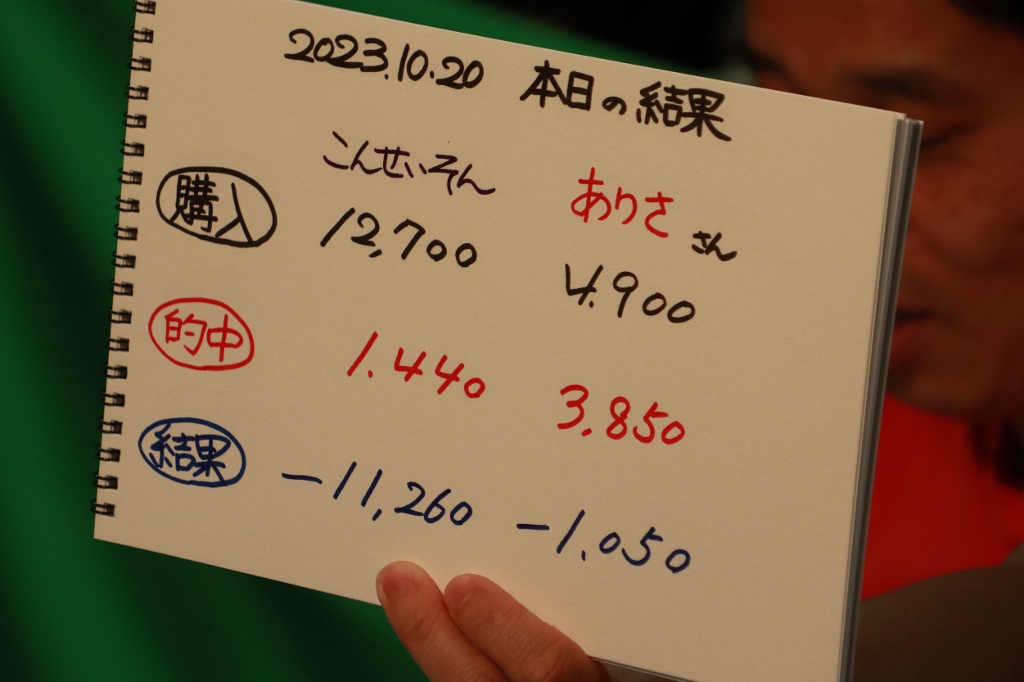 2023.10.20 本日の結果
こんせいそん ありささん
購入 12,700 4.900
的中 1.440 3.850
結果 -11,260 -1.050